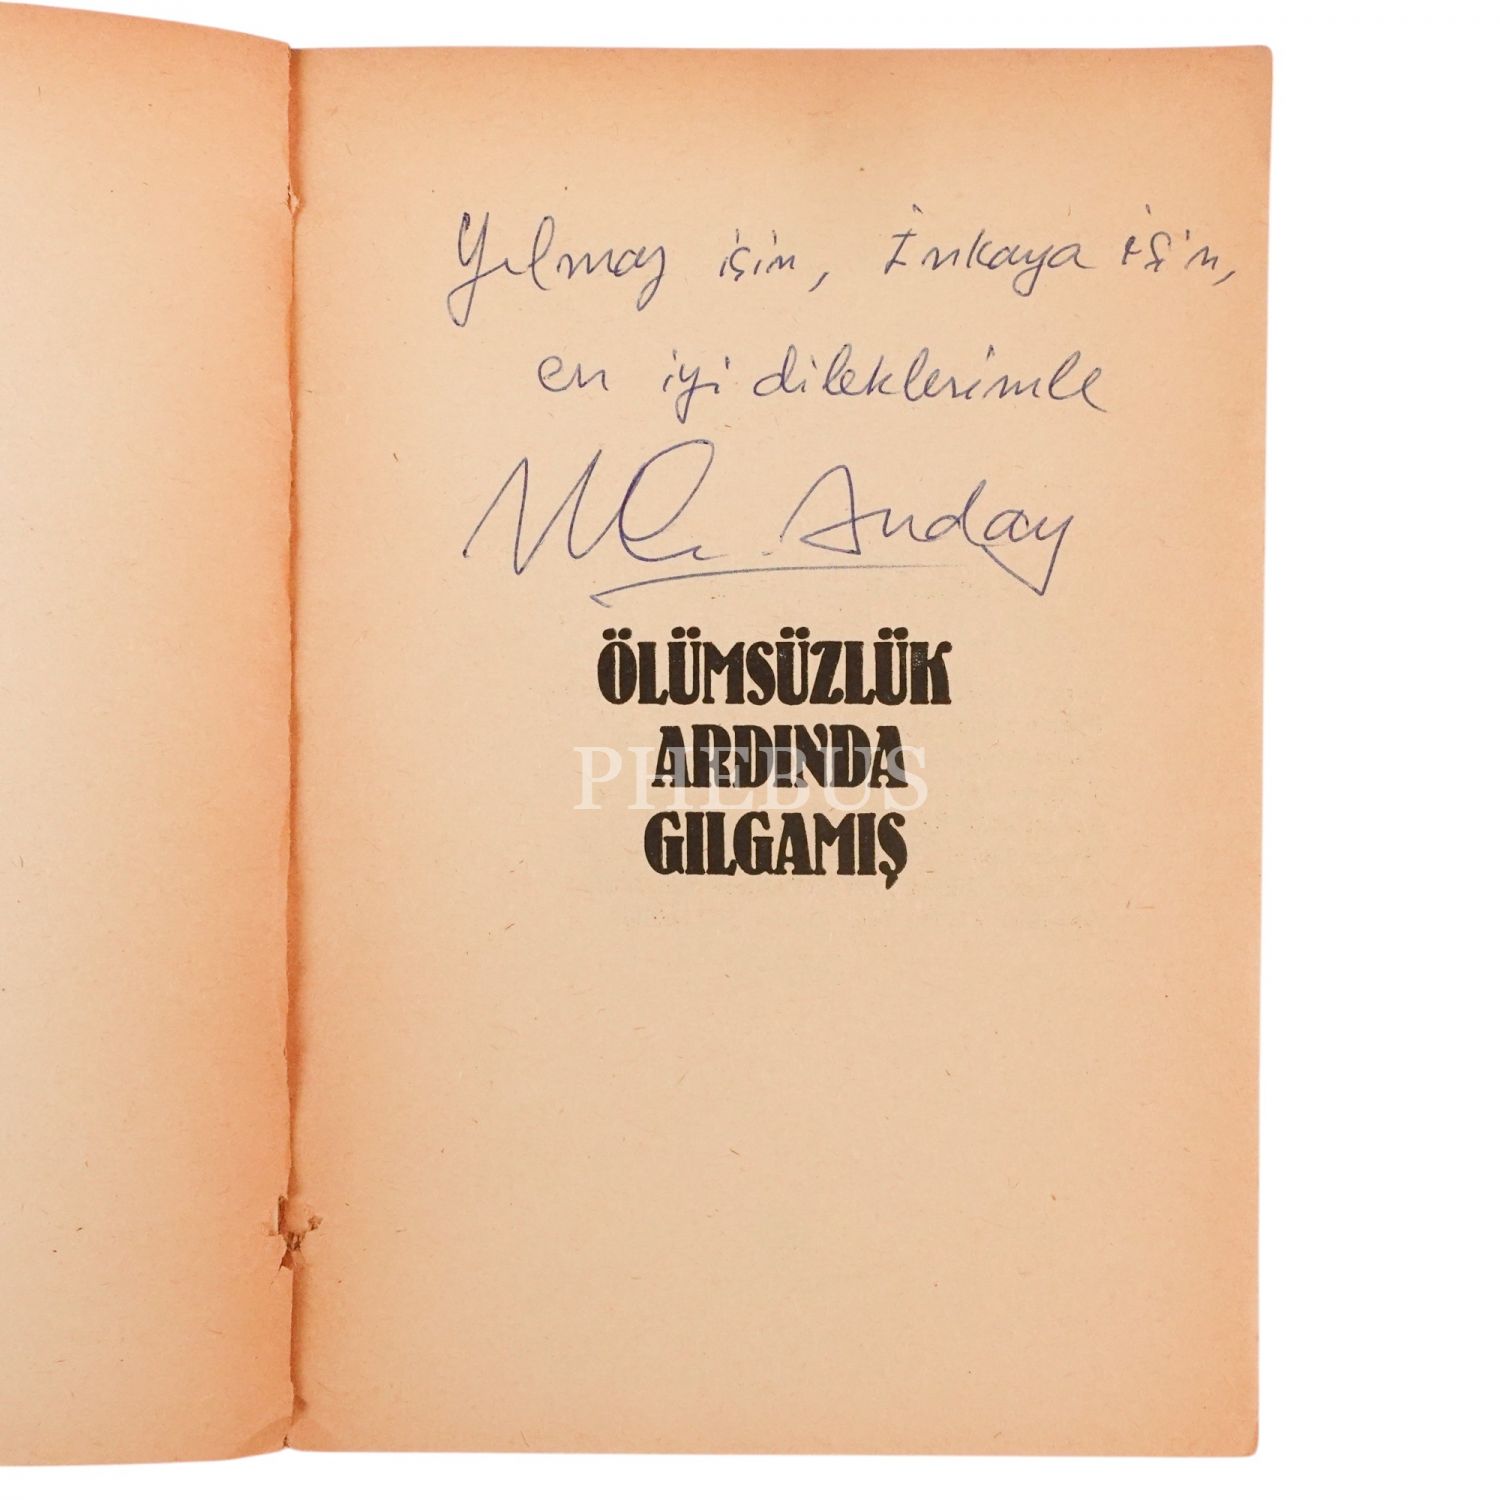 Yılmaz için, İnkaya için,
en iyi dileklerimle
M. C. Anday
ÖLÜMSÜZLÜK
ARDINDA
GILGAMIŞ
PHEBUS